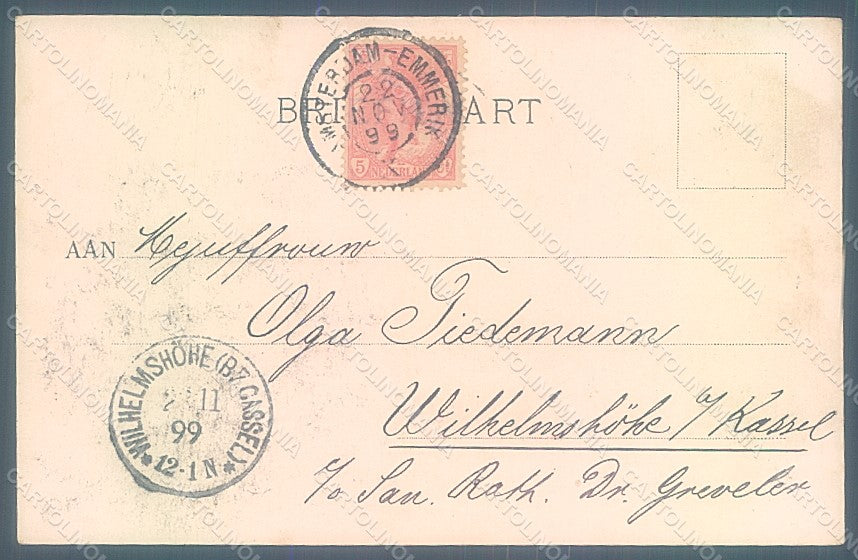 AMSTERDAM-EMMERIK
22
NOV
99
5 NEDERLAND
AAN Mejuffrouw
Olga Tiedemann
Wilhelmshöhe /Kassel
℅ San. Rath. Dr. Greveler
WILHELMSHÖHE (BZ CASSEL)
11
99
*12-1N*
CARTOLINOMANIA